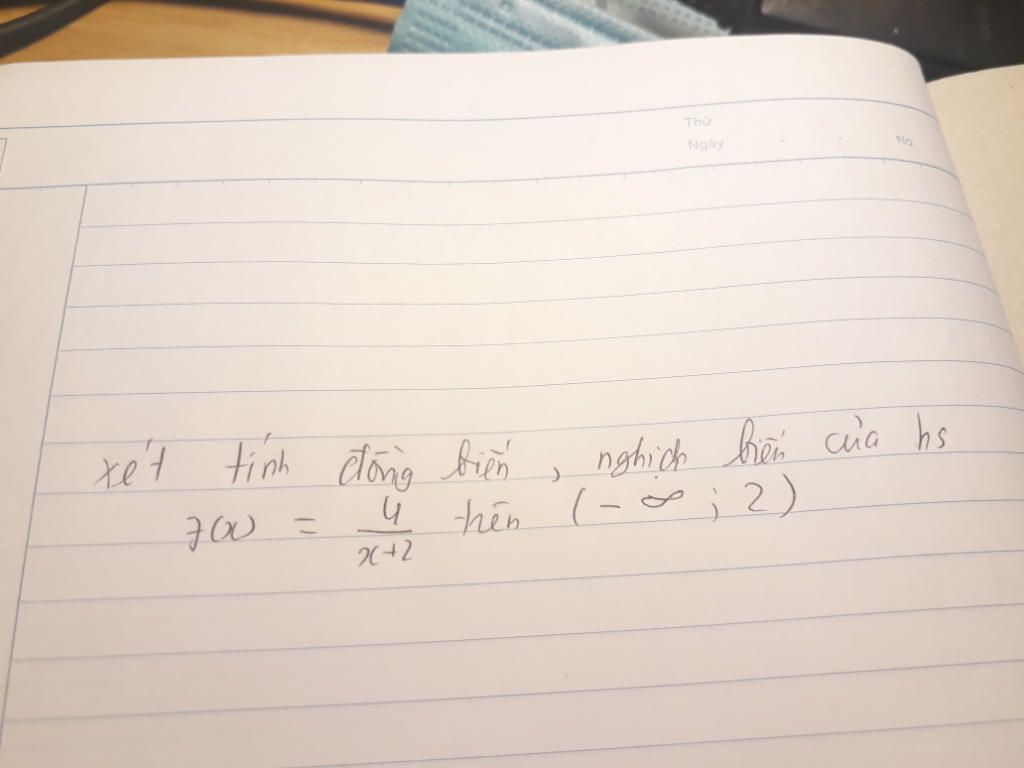 Thứ
Ngày
No.
xét tính đồng biến, nghịch biến của hs
f(x) = 4/(x+2) trên (-∞; 2)